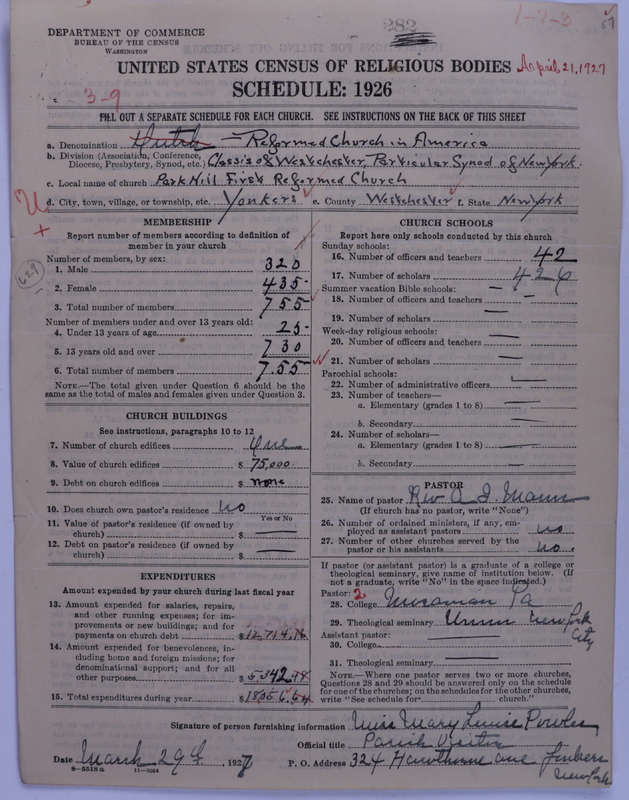 282
1-7-3
57
DEPARTMENT OF COMMERCE
BUREAU OF THE CENSUS
WASHINGTON
UNITED STATES CENSUS OF RELIGIOUS BODIES April 21, 1927
SCHEDULE: 1926
3-9
FILL OUT A SEPARATE SCHEDULE FOR EACH CHURCH. SEE INSTRUCTIONS ON THE BACK OF THIS SHEET
a. Denomination Dutch Reformed Church in America
b. Division (Association, Conference, Diocese, Presbytery, Synod, etc.) Classis of Westchester, Particular Synod of New York.
c. Local name of church Park Hill First Reformed Church
d. City, town, village, or township, etc. Yonkers e. County Westchester f. State New York
MEMBERSHIP
Report number of members according to definition of
member in your church
Number of members, by sex:
1. Male 320
2. Female 435
3. Total number of members 755
Number of members under and over 13 years old:
4. Under 13 years of age 25
5. 13 years old and over 730
6. Total number of members 755
NOTE.—The total given under Question 6 should be the
same as the total of males and females given under Question 3.
627
CHURCH BUILDINGS
See instructions, paragraphs 10 to 12
7. Number of church edifices One
8. Value of church edifices $ 75,000
9. Debt on church edifices $ none
10. Does church own pastor's residence? No
Yes or No
11. Value of pastor's residence (if owned by
church) $
12. Debt on pastor's residence (if owned by
church) $
EXPENDITURES
Amount expended by your church during last fiscal year
13. Amount expended for salaries, repairs,
and other running expenses; for im-
provements or new buildings; and for
payments on church debt $ 12,714.16
14. Amount expended for benevolences, in-
cluding home and foreign missions; for
denominational support; and for all
other purposes $
15. Total expenditures during year $
CHURCH SCHOOLS
Report here only schools conducted by this church
Sunday schools:
16. Number of officers and teachers 42
17. Number of scholars 426
Summer vacation Bible schools:
18. Number of officers and teachers
19. Number of scholars
Week-day religious schools:
20. Number of officers and teachers
21. Number of scholars
Parochial schools:
22. Number of administrative officers
23. Number of teachers—
a. Elementary (grades 1 to 8)
b. Secondary
24. Number of scholars—
a. Elementary (grades 1 to 8)
b. Secondary
PASTOR
25. Name of pastor Rev A. I. Mann
(If church has no pastor, write "None")
26. Number of ordained ministers, if any, em-
ployed as assistant pastors no
27. Number of other churches served by the
pastor or his assistants no.
If pastor (or assistant pastor) is a graduate of a college or
theological seminary, give name of institution below. (If
not a graduate, write "No" in the space indicated.)
Pastor: 2
28. College Pa
29. Theological seminary Union New York City
Assistant pastor:
30. College
31. Theological seminary
NOTE.—Where one pastor serves two or more churches,
Questions 28 and 29 should be answered only on the schedule
for one of the churches; on the schedules for the other churches,
write "See schedule for church."
Signature of person furnishing information Miss Mary Louise Powles
Official title Parish Visitor
Date March 29, 1927 P. O. Address 324 Hawthorne ave Yonkers
New York
8-5518a 11-9054